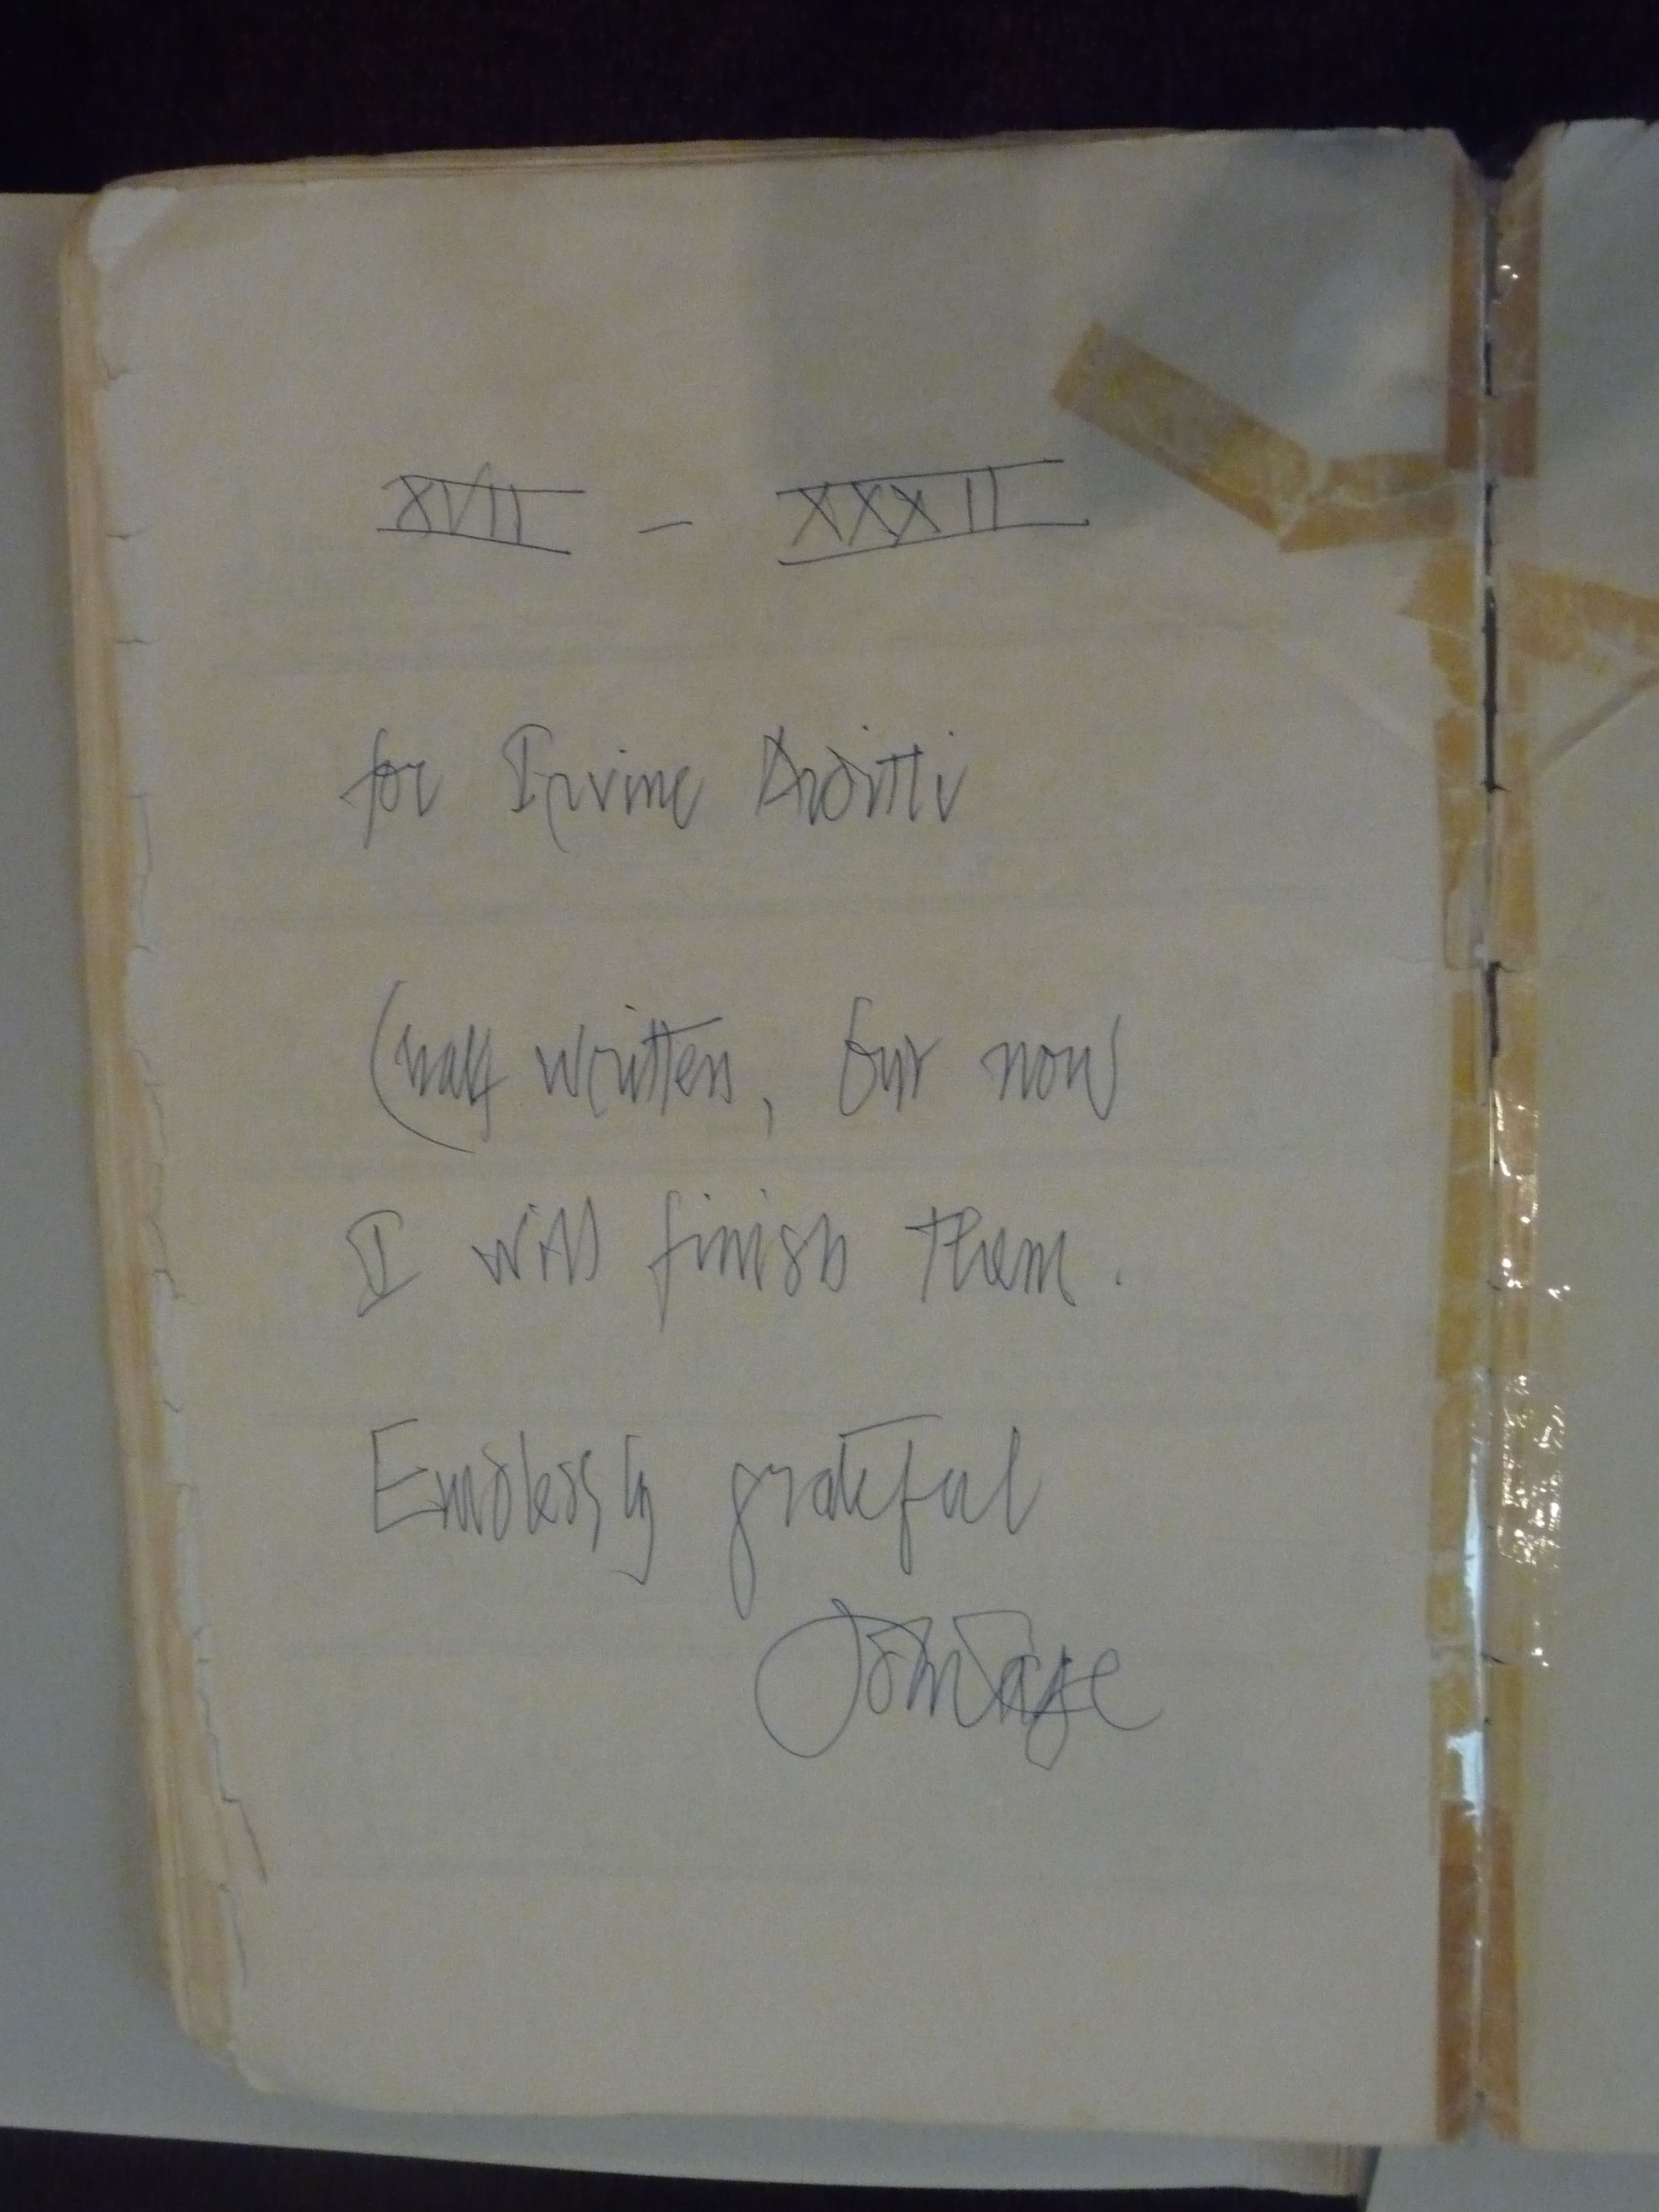 XVII – XXXII
for Irvine Arditti
(half written, but now
I will finish them.
Endlessly grateful
John Cage